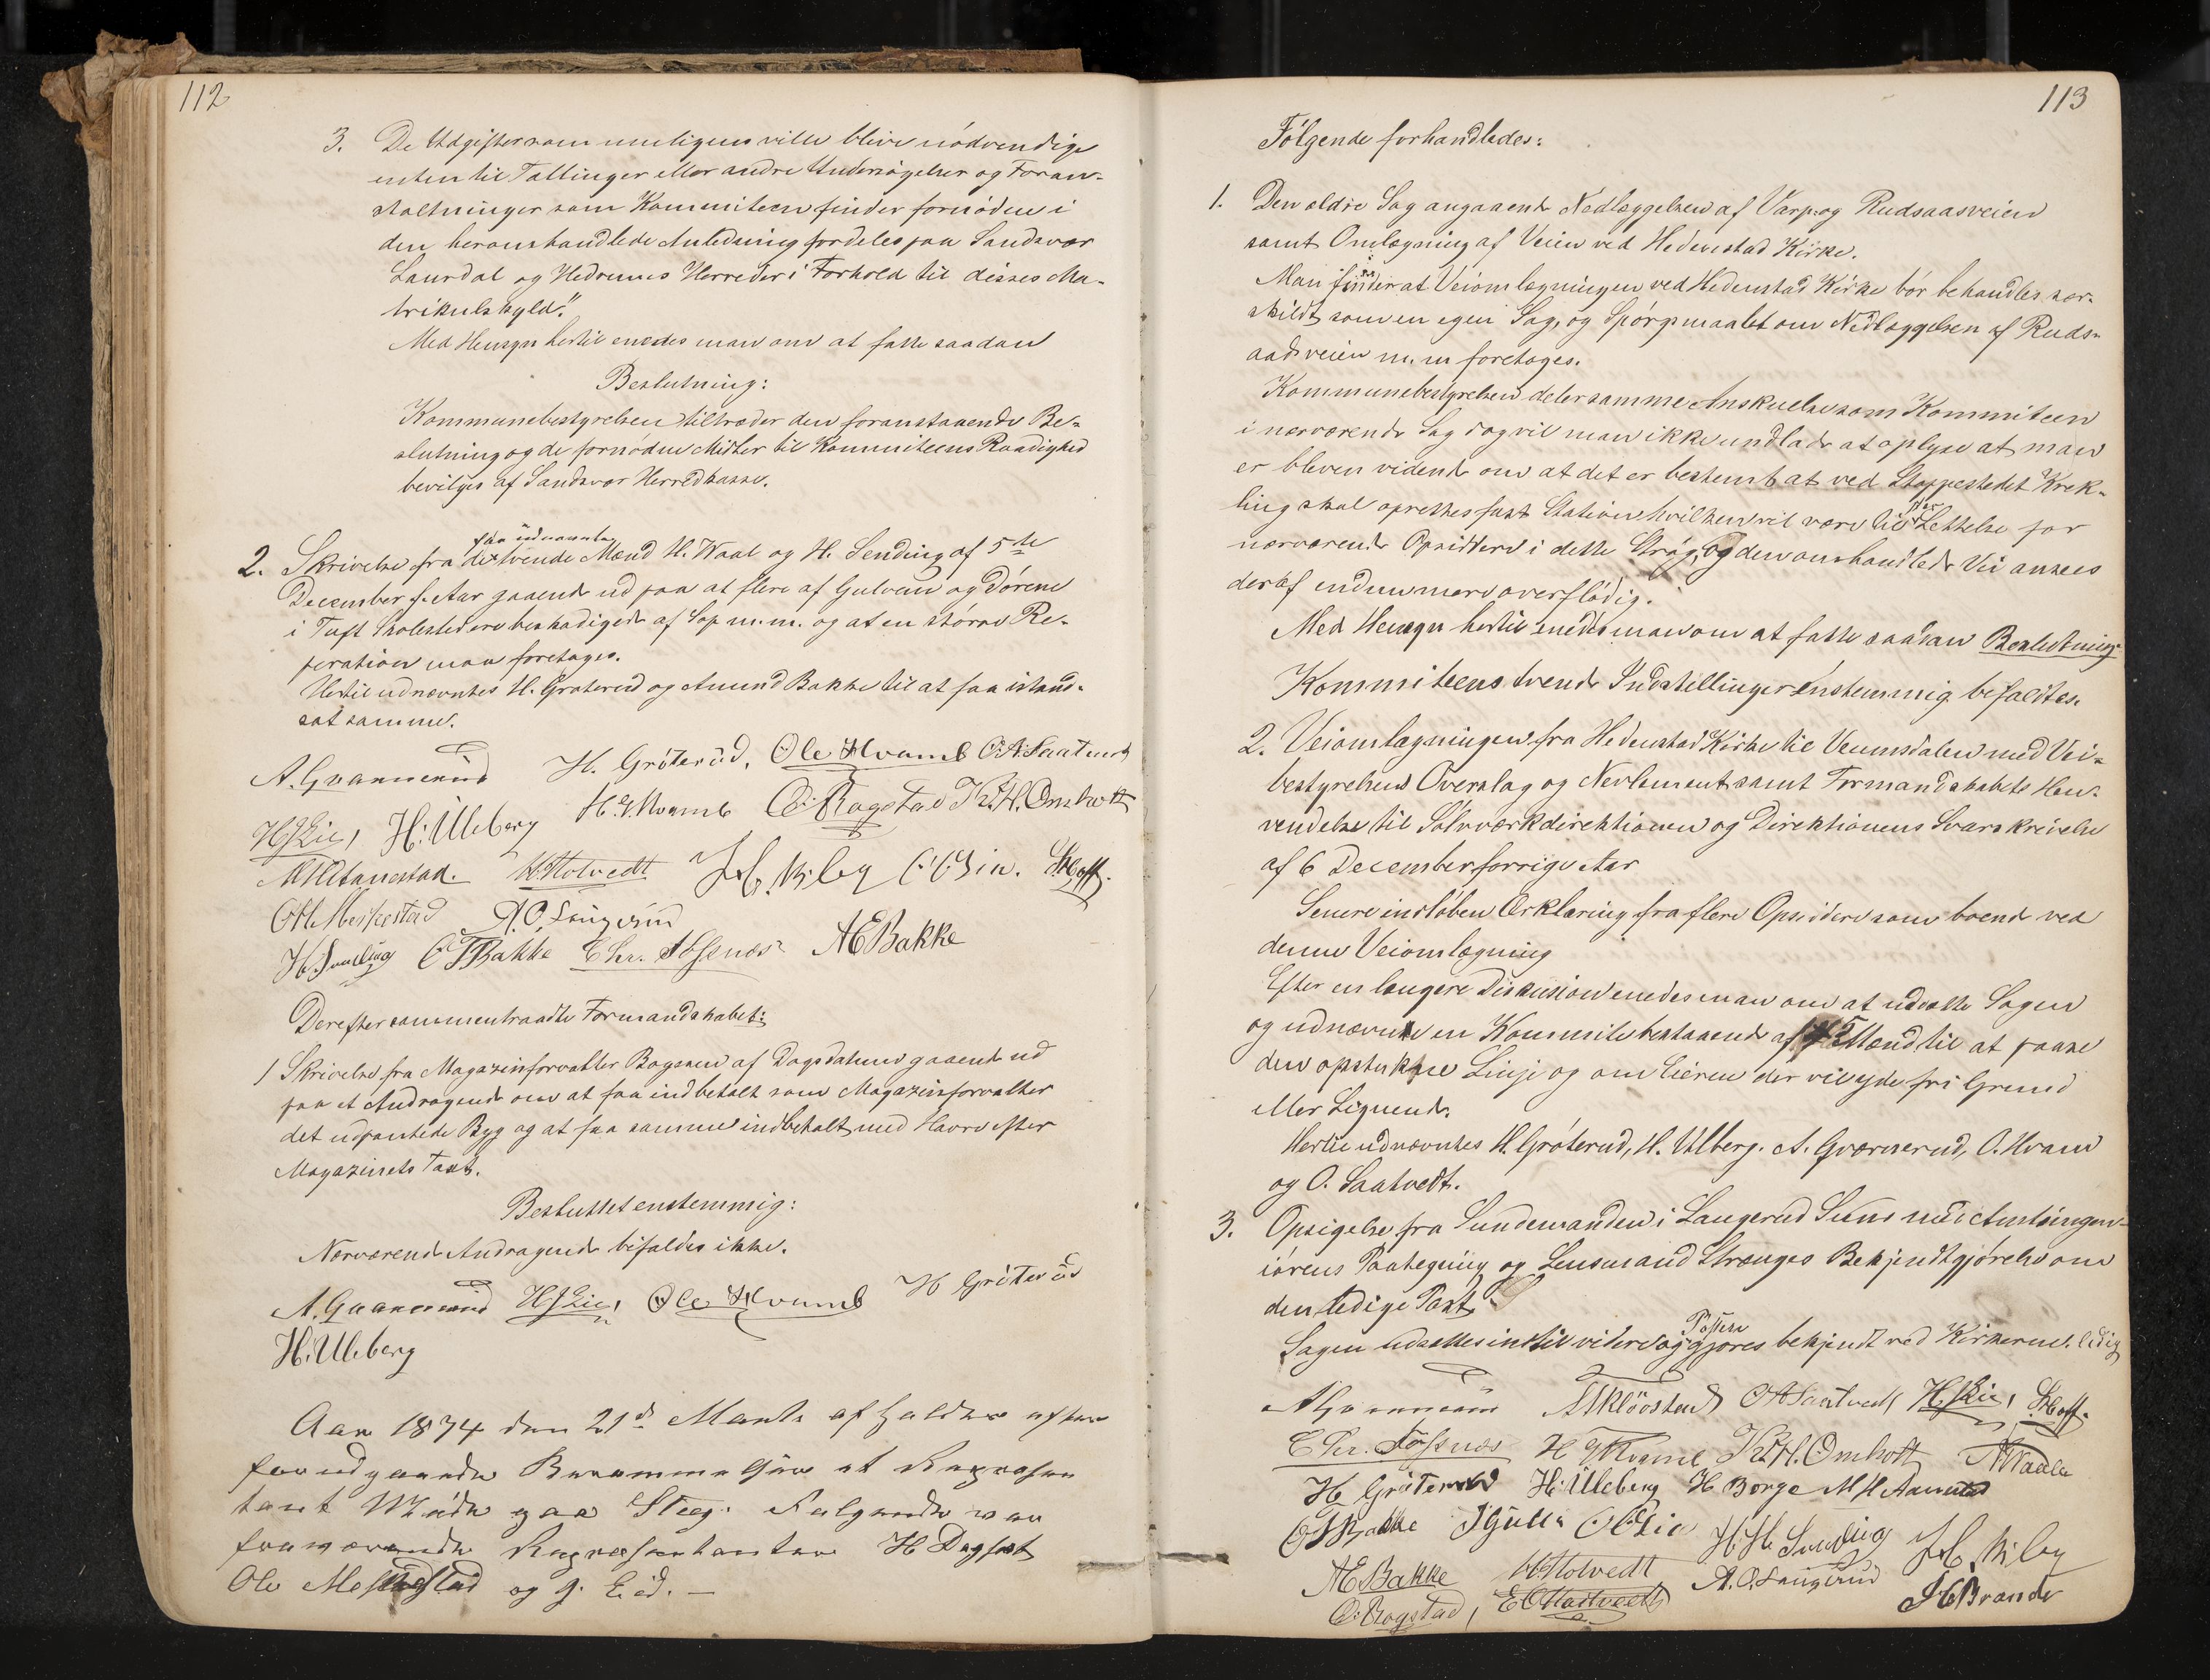 112
3. De Udgifter som muligens ville blive nödvendige
enten til Tallinger eller andre Undersögelser og Foran-
staltninger som Kommiteen finder fornöden i
den heromhandlede Anledning fordeles paa Sandsvær
Laurdal og Hedrums Herreder i Forhold til disses Ma-
trikulskyld."
Med Hensyn hertil enedes man om at fatte saadan
Beslutning:
Kommunebestyrelsen tiltræder den foranstaaende Be-
slutning og de fornödne Midler til Kommiteens Raadighed
bevilges af Sandsvær Herredskasse.
dertil udnævnte
2. Skrivelse fra de tvende Mænd H. Waal og H. Sending af 5te
December f. Aar gaaende ud paa at flere af Gulvene og Dörene
i Tuft Skolested ere beskadigede af Sop m.m. og at en större Re-
peration maa foretages.
Hertil udnævntes H. Gröterud og Amund Bakke til at faa istand-
sat samme.
A. Gvænnerud H. Gröterud, Ole Hvamb O. A. Saatvedt
H J Lie, H. Ulleberg H. G. Hvamb O. Rogstad Kr. H. Omholt
M H Aanestad. K Holvedt H. Kiley O. C. Lie. S. Hoff.
O H Meskestad A. O. Langerud
H. Sending O T Bakke Chr. Fossnæs A E Bakke
Derefter sammentraadte Formandskabet:
1 Skrivelse fra Magazinforvalter Bogesen af Dagsdatum gaaende ud
paa et Andragende om at faa indbetalt som Magazinforvalter
det udpantede Byg og at faa samme indbetalt med Havre efter
Magazinets Taxt.
Besluttet enstemmig:
Nærværende Andragende bifaldes ikke.
A. Gvænnerud H J Lie, Ole Hvamb H Gröterud
H. Ulleberg
Aar 1874 den 21de Marts afholdtes efter
forudgaaende Berammelse et Repræsen
tant Möde paa Steg. Fölgende var
fraværende Repræsentanter H Dagsat
Ole Meskestad og J. Eid. —
113
Fölgende forhandledes:
1. Den ældre Sag angaaende Nedlæggelsen af Varp- og Rudsaasveien
samt Omlægning af Veien ved Hedenstad Kirke.
Man finder at Veiomlægningen ved Hedenstad Kirke bör behandles sær-
skildt som en egen Sag, og Spörgsmaalet om Nedlæggelsen af Ruds-
aasveien m.m foretages.
Kommunebestyrelsen deler samme Anskuelse som Kommiteen
i nærværende Sag dog vil man ikke undlade at oplyse at man
er bleven vidende om at det er bestemt at ved Stoppestedet Krek-
ling skal oprettes fast Station hvilken vil være til stor Lettelse for
nærværende Opsiddere i dette Strög, og den omhandlede Vei ansees
deraf endnu mere overflödig.
Med Hensyn hertil enedes man om at fatte saadan Beslutning
Kommiteens tvende Indstillinger enstemmig bifaldtes.
2. Veiomlægningen fra Hedenstad Kirke til Veumsdalen med Vei-
bestyrelsens Overslag og Nevlement samt Formandskabets Hen-
vendelse til Sölvværkdirektionen og Direktionens Svarskrivelse
af 6 December forrige Aar
Senere indlöben Erklæring fra flere Opsiddere som boende ved
denne Veiomlægning
Efter en længere Diskusion enedes man om at udsætte Sagen
og udnævnte en Kommite bestaaende af 5 Mænd til at paase
den opstukne Linje og om Eieren der vil yde fri Grund
eller Lignende.
Hertil udnævntes H. Gröterud, H. Ulberg. A. Gværnerud, O. Hvam
og O. Saatvedt.
3. Opsigelse fra Sundemanden i Langerud Sund med Amtsingen-
iörens Paategning og Lensmand Strænges Bekjendtgjörelse om
den ledige Post.
Posten
Sagen udsættes indtil videre og gjöres bekjendt ved Kirkerne. ledig
A Gvænnerud A Klöostad O A Saatvedt H. J Lie, S. Hoff.
Chr. Fossnæs H G Hvamb Kr. H. Omholt N Waale
H Gröterud H. Ulleberg H Borge M H Aanestad
O T Bakke O C Lie H. H. Sending H. Kiley
A E Bakke K Holvedt A. O. Langerud
O. Rogstad, E O Hostvedt H Brande